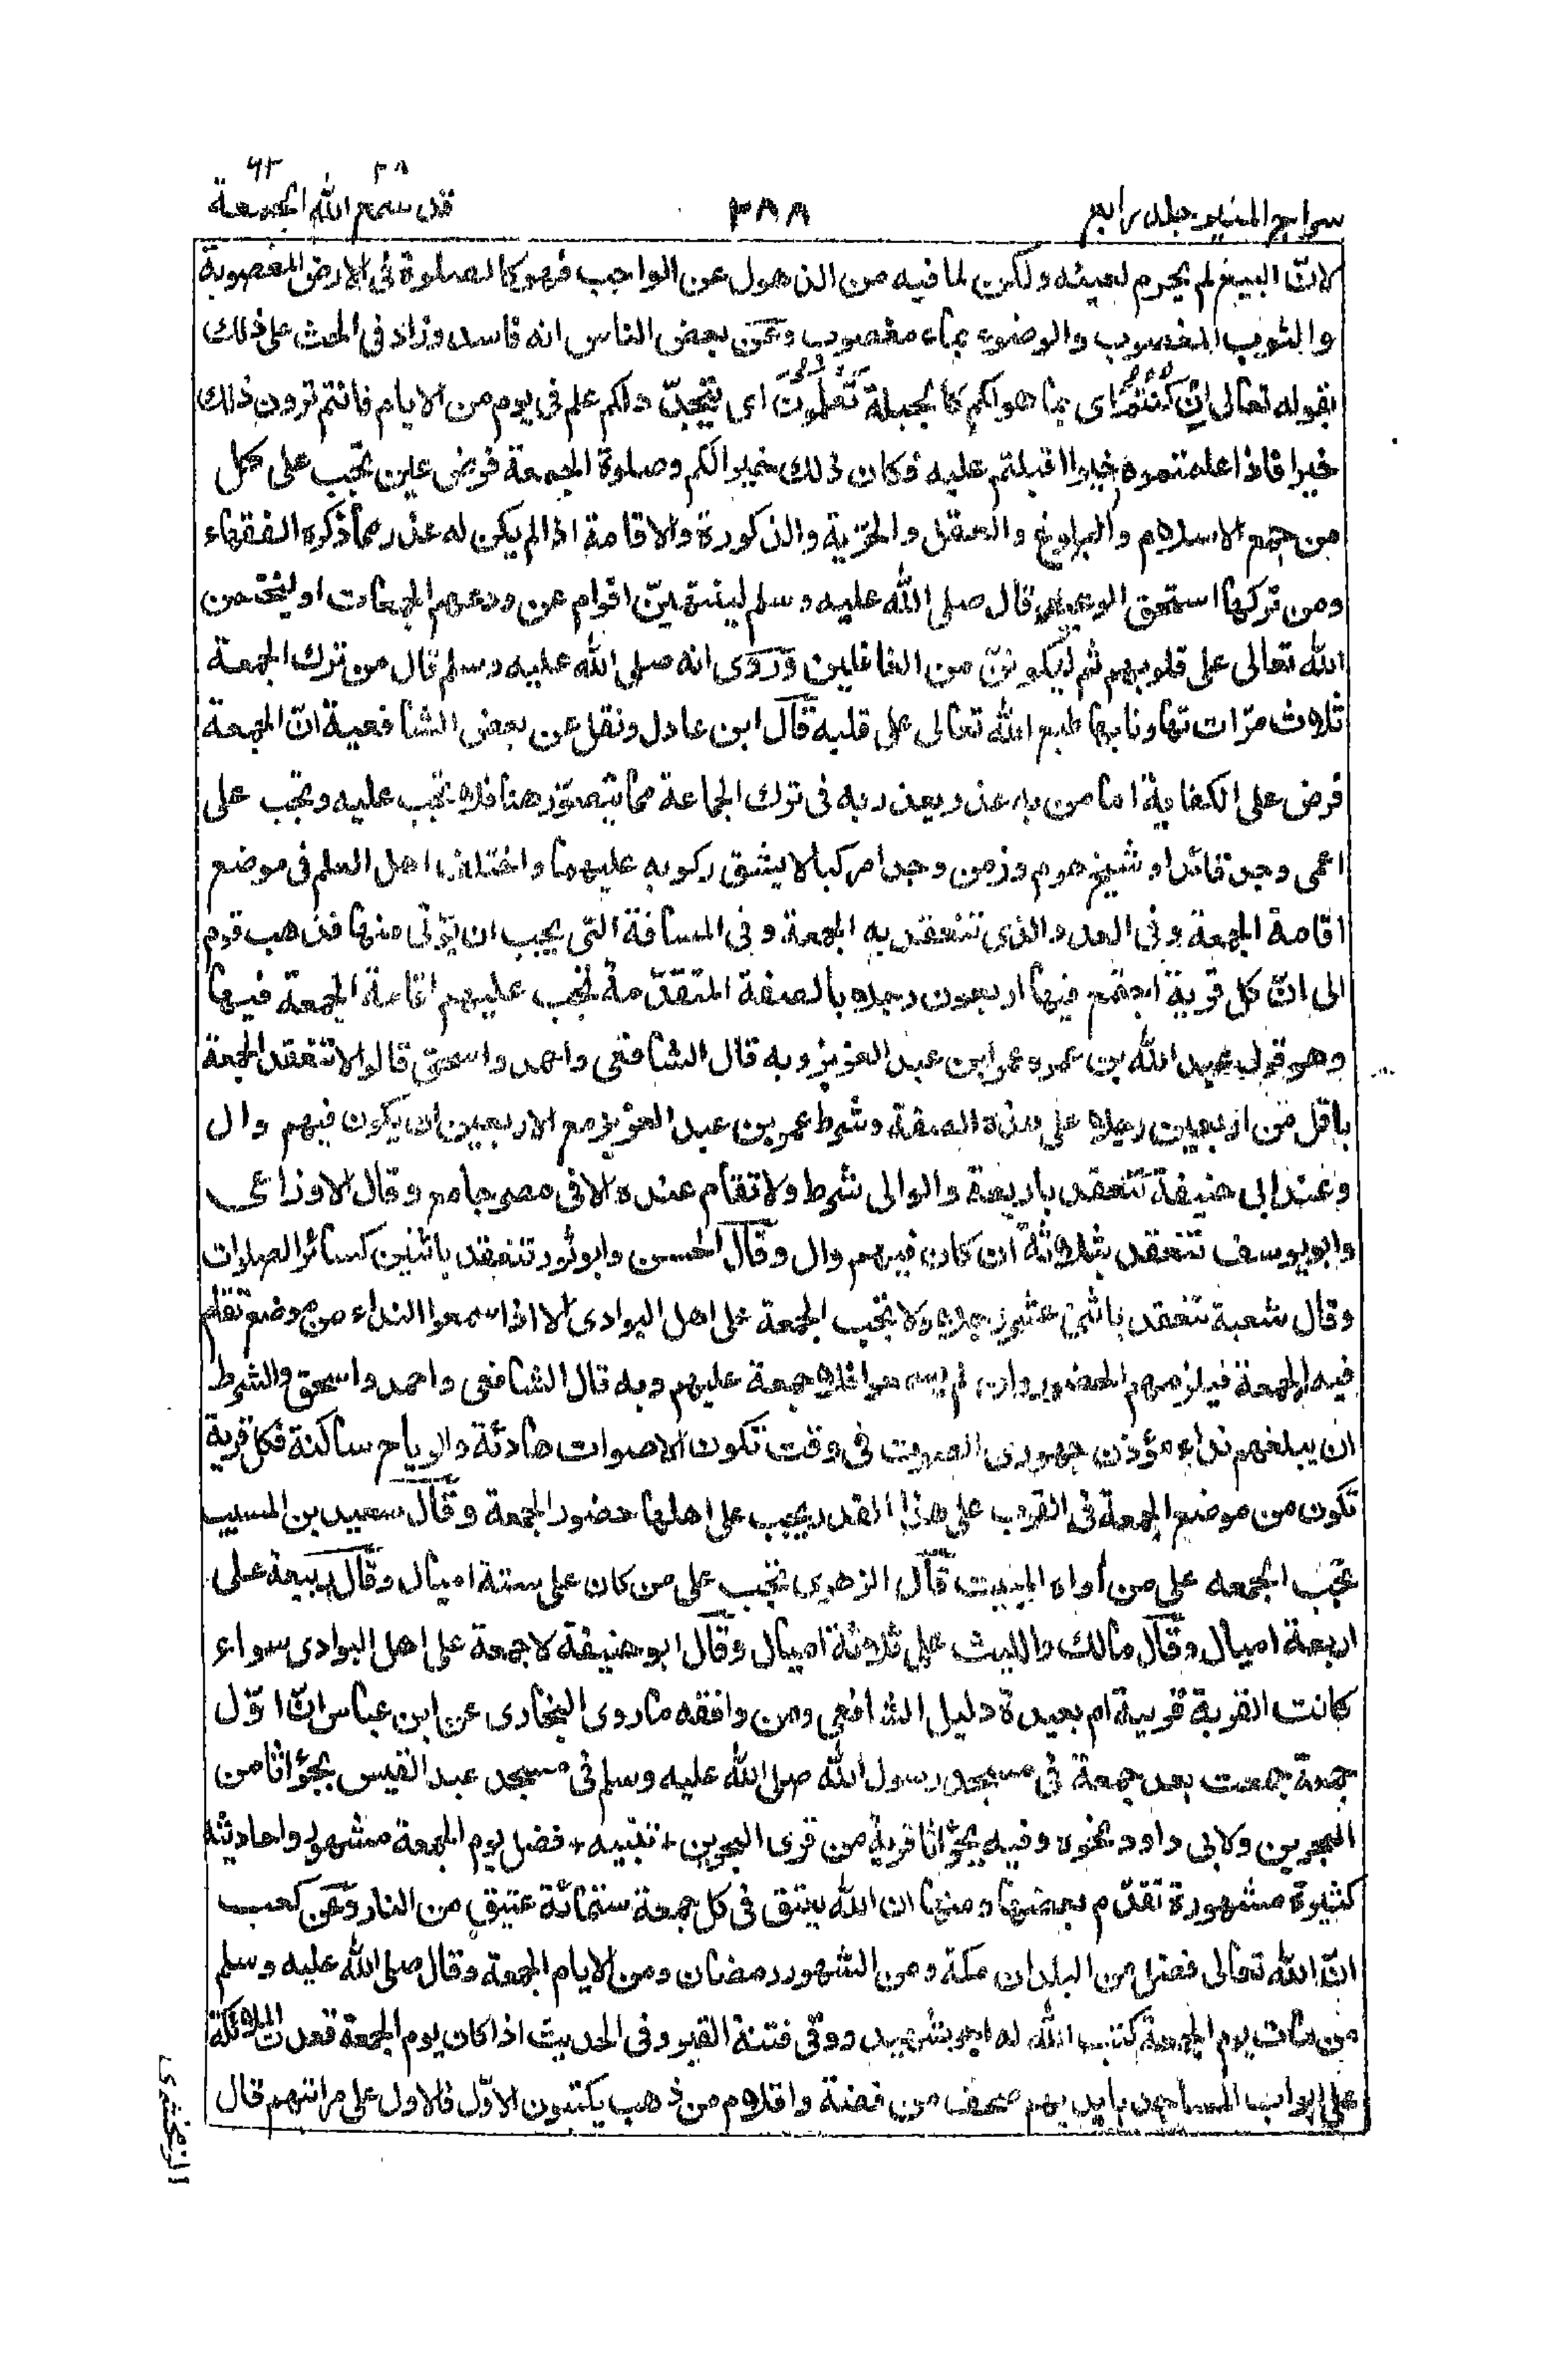 ۲۸ ۶۲
سراج المنير جلد رابع ۳۸۸ قد سمع الله الجمعة
لانّ البيع لم يحرم لعينه ولكن لما فيه من الذهول عن الواجب فهو كالصلوة فى الارض المغصوبة
والثوب المغصوب والوضوء بماء مغصوب وعن بعض الناس انه فاسد وزاد فى الحث على ذلك
بقوله تعالى ان كنتم اى بما هو لكم كالجبلة تعلمون اى يتجدّد لكم علم فى يوم من الايام فانتم ترون ذلك
خيرا فاذا علمتموه خيرا اقبلتم عليه فكان ذلك خيرا لكم وصلوة الجمعة فرض عين تجب على كل
من جمع الاسلام والبلوغ والعقل والحرّية والذكورة والاقامة اذا لم يكن له عذر مما ذكره الفقهاء
ومن تركها استحق الوعيد قال صلى الله عليه وسلم لينتهينّ اقوام عن ودعهم الجمعات او ليختمن
الله تعالى على قلوبهم ثم ليكوننّ من الغافلين وروى انه صلى الله عليه وسلم قال من ترك الجمعة
ثلاث مرّات تهاونا بها طبع الله تعالى على قلبه قال ابن عادل ونقل عن بعض الشافعية انّ الجمعة
فرض على الكفاية اما من به عذر يعذر به فى ترك الجماعة مما يتصوّر هنا فلا تجب عليه وتجب على
اعمى وجد قائدا وشيخ هرم وزمن وجدا مركبا لا يشق ركوبه عليهما واختلف اهل العلم فى موضع
اقامة الجمعة وفى العدد الذى تنعقد به الجمعة وفى المسافة التى يجب ان يؤتى منها فذهب قوم
الى انّ كل قرية اجتمع فيها اربعون رجلا بالصفة المتقدّمة تجب عليهم اقامة الجمعة فيها
وهو قول عبيد الله بن عمر وعمر ابن عبد العزيز وبه قال الشافعى واحمد واسحق قالوا لا تنعقد الجمعة
باقل من اربعين رجلا على هذه الصفة وشرط عمر بن عبد العزيز مع الاربعين ان يكون فيهم وال
وعند ابى حنيفة تنعقد باربعة والوالى شرط ولا تقام عنده الا فى مصر جامع وقال الاوزاعى
وابو يوسف تنعقد بثلاثة ان كان فيهم وال وقال الحسن وابو ثور تنعقد باثنين كسائر الصلوات
وقال شعبة تنعقد باثنى عشر رجلا ولا تجب الجمعة على اهل البوادى الا اذا سمعوا النداء من موضع تقام
فيه الجمعة فيلزمهم الحضور وان لم يسمعوا فلا جمعة عليهم وبه قال الشافعى واحمد واسحق والشرط
ان يبلغهم نداء مؤذن جهورى الصوت فى وقت تكون الاصوات هادئة والرياح ساكنة فكل قرية
تكون من موضع الجمعة فى القرب على هذا القدر يجب على اهلها حضور الجمعة وقال سعيد بن المسيب
تجب الجمعه على من أواه المبيت قال الزهرى تجب على من كان على ستة اميال وقال ربيعة على
اربعة اميال وقال مالك والليث على ثلاثة اميال وقال ابو حنيفة لا جمعة على اهل البوادى سواء
كانت القرية قريبة ام بعيدة دليل الشافعى ومن وافقه ما روى البخارى عن ابن عباس انّ اوّل
جمعة جمعت بعد جمعة فى مسجد رسول الله صلى الله عليه وسلم فى مسجد عبد القيس بجؤاثا من
البحرين ولابى داود نحوه وفيه بجؤاثا قرية من قرى البحرين + تنبيه + فضل يوم الجمعة مشهور واحاديثه
كثيرة مشهورة تقدّم بعضها ومنها ان الله يعتق فى كل جمعة ستمائة عتيق من النار وعن كعب
انّ الله تعالى فضل من البلدان مكة ومن الشهور رمضان ومن الايام الجمعة وقال صلى الله عليه وسلم
من مات يوم الجمعة كتب الله له اجر شهيد ووقى فتنة القبر وفى الحديث اذا كان يوم الجمعة قعدت الملائكة
على ابواب المساجد بايديهم صحف من فضة واقلام من ذهب يكتبون الاوّل فالاول على مراتبهم قال
الزمخشرى